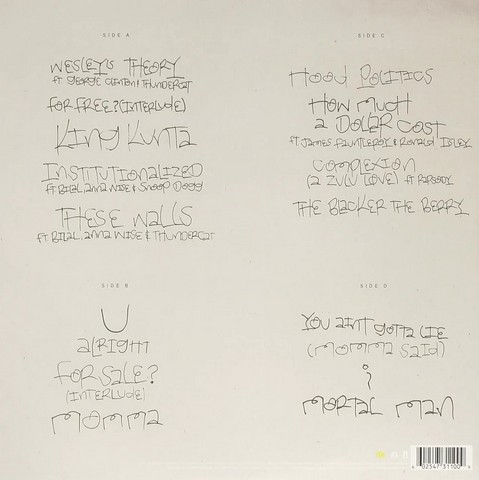 SIDE A
WESLEY'S THEORY
FT. GEORGE CLINTON & THUNDERCAT
FOR FREE? (INTERLUDE)
KING KUNTA
INSTITUTIONALIZED
FT. BILAL, ANNA WISE & SNOOP DOGG
THESE WALLS
FT. BILAL, ANNA WISE & THUNDERCAT
SIDE B
U
ALRIGHT
FOR SALE?
(INTERLUDE)
MOMMA
SIDE C
HOOD POLITICS
HOW MUCH
A DOLLAR COST
FT JAMES FAUNTLEROY & RONALD ISLEY
COMPLEXION
(A ZULU LOVE) FT. RAPSODY
THE BLACKER THE BERRY
SIDE D
YOU AINT GOTTA LIE
(MOMMA SAID)
i
MORTAL MAN
6 02547 31100 9